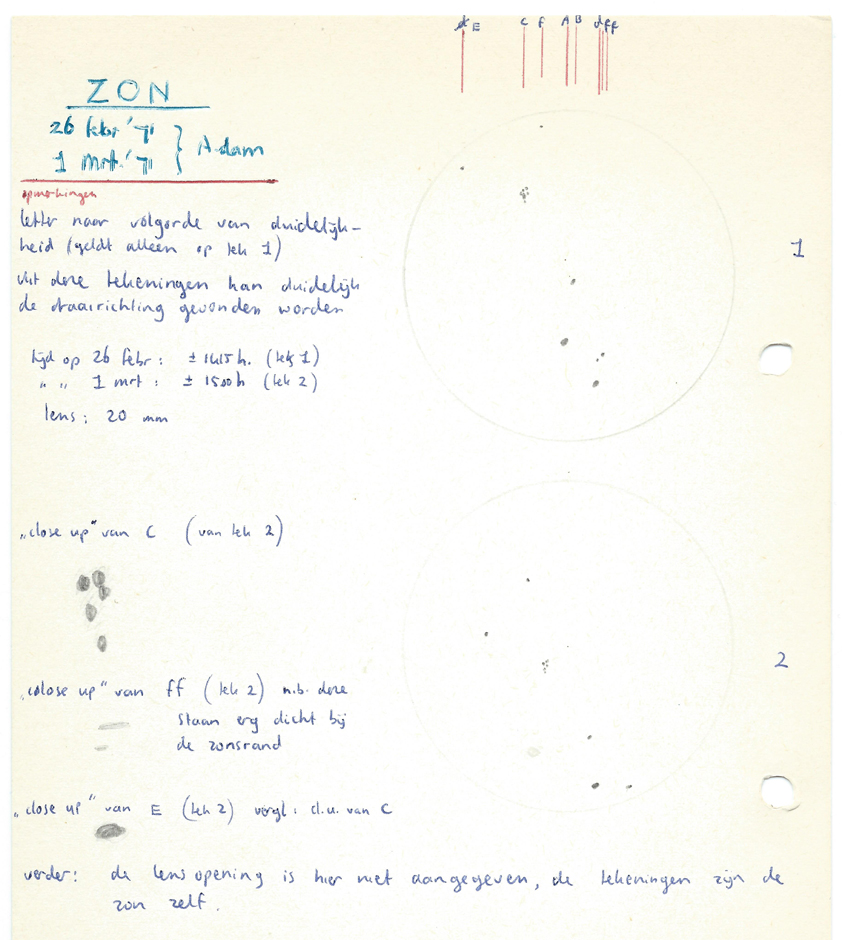 E C f A B d ff
ZON
26 febr '77
1 mrt. '77
A-dam
opmerkingen
letter naar volgorde van duidelijk-
heid (geldt alleen op tek 1)
uit deze tekeningen kan duidelijk
de draairichting gevonden worden
tijd op 26 febr : ± 1415 h. (tek 1)
" " 1 mrt : ± 1500 h (tek 2)
lens : 20 mm
1
„close up" van C (van tek 2)
2
„close up" van ff (tek 2) n.b. deze
staan erg dicht bij
de zonsrand
„close up" van E (tek 2) vergl : cl.u. van C
verder : de lensopening is hier niet aangegeven, de tekeningen zijn de
zon zelf.